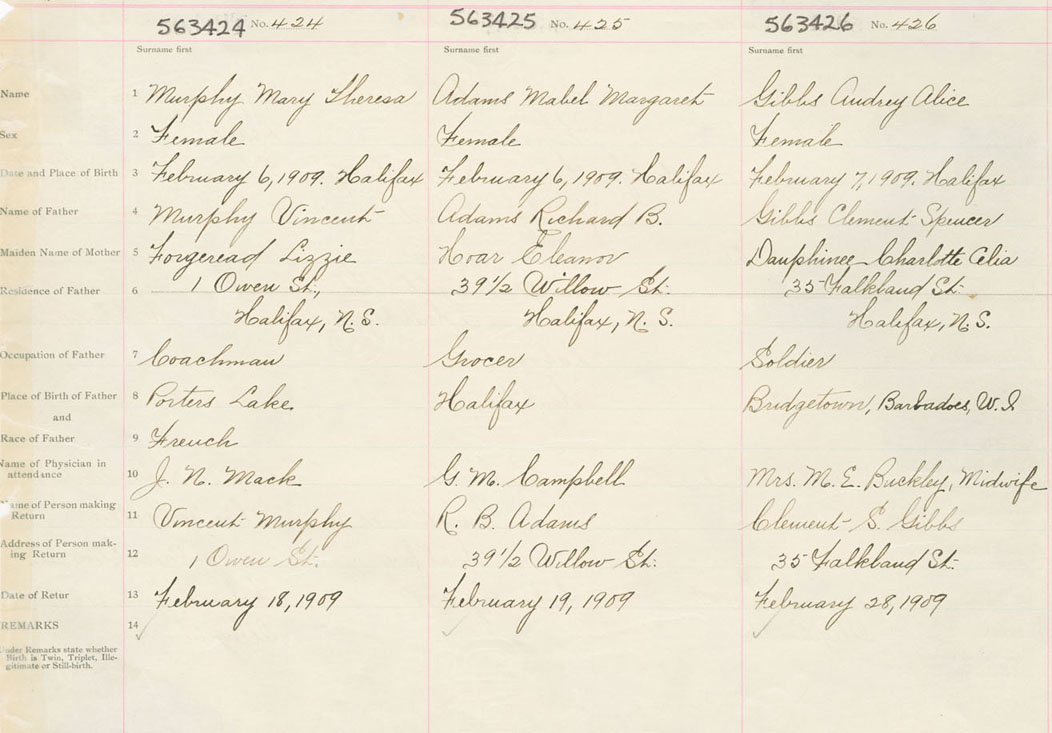 563424 No. 424 563425 No. 425 563426 No. 426
Surname first Surname first Surname first
Name 1 Murphy Mary Theresa Adams Mabel Margaret Gibbs Audrey Alice
Sex 2 Female Female Female
Date and Place of Birth 3 February 6, 1909. Halifax February 6, 1909. Halifax February 7, 1909. Halifax
Name of Father 4 Murphy Vincent Adams Richard B. Gibbs Clement Spencer
Maiden Name of Mother 5 Forgeread Lizzie Hoar Eleanor Dauphinee Charlotte Celia
Residence of Father 6 1 Owen St., 39 1/2 Willow St. 35 Falkland St.
Halifax, N.S. Halifax, N.S. Halifax, N.S.
Occupation of Father 7 Coachman Grocer Soldier
Place of Birth of Father 8 Porters Lake Halifax Bridgetown, Barbadoes, W.I
and
Race of Father 9 French
Name of Physician in
attendance 10 J. N. Mack G. M. Campbell Mrs. M. E. Buckley, Midwife
Name of Person making
Return 11 Vincent Murphy R. B. Adams Clement S. Gibbs
Address of Person mak-
ing Return 12 1 Owen St. 39 1/2 Willow St. 35 Falkland St.
Date of Retur 13 February 18, 1909 February 19, 1909 February 28, 1909
REMARKS 14
Under Remarks state whether
Birth is Twin, Triplet, Ille-
gitimate or Still-birth.